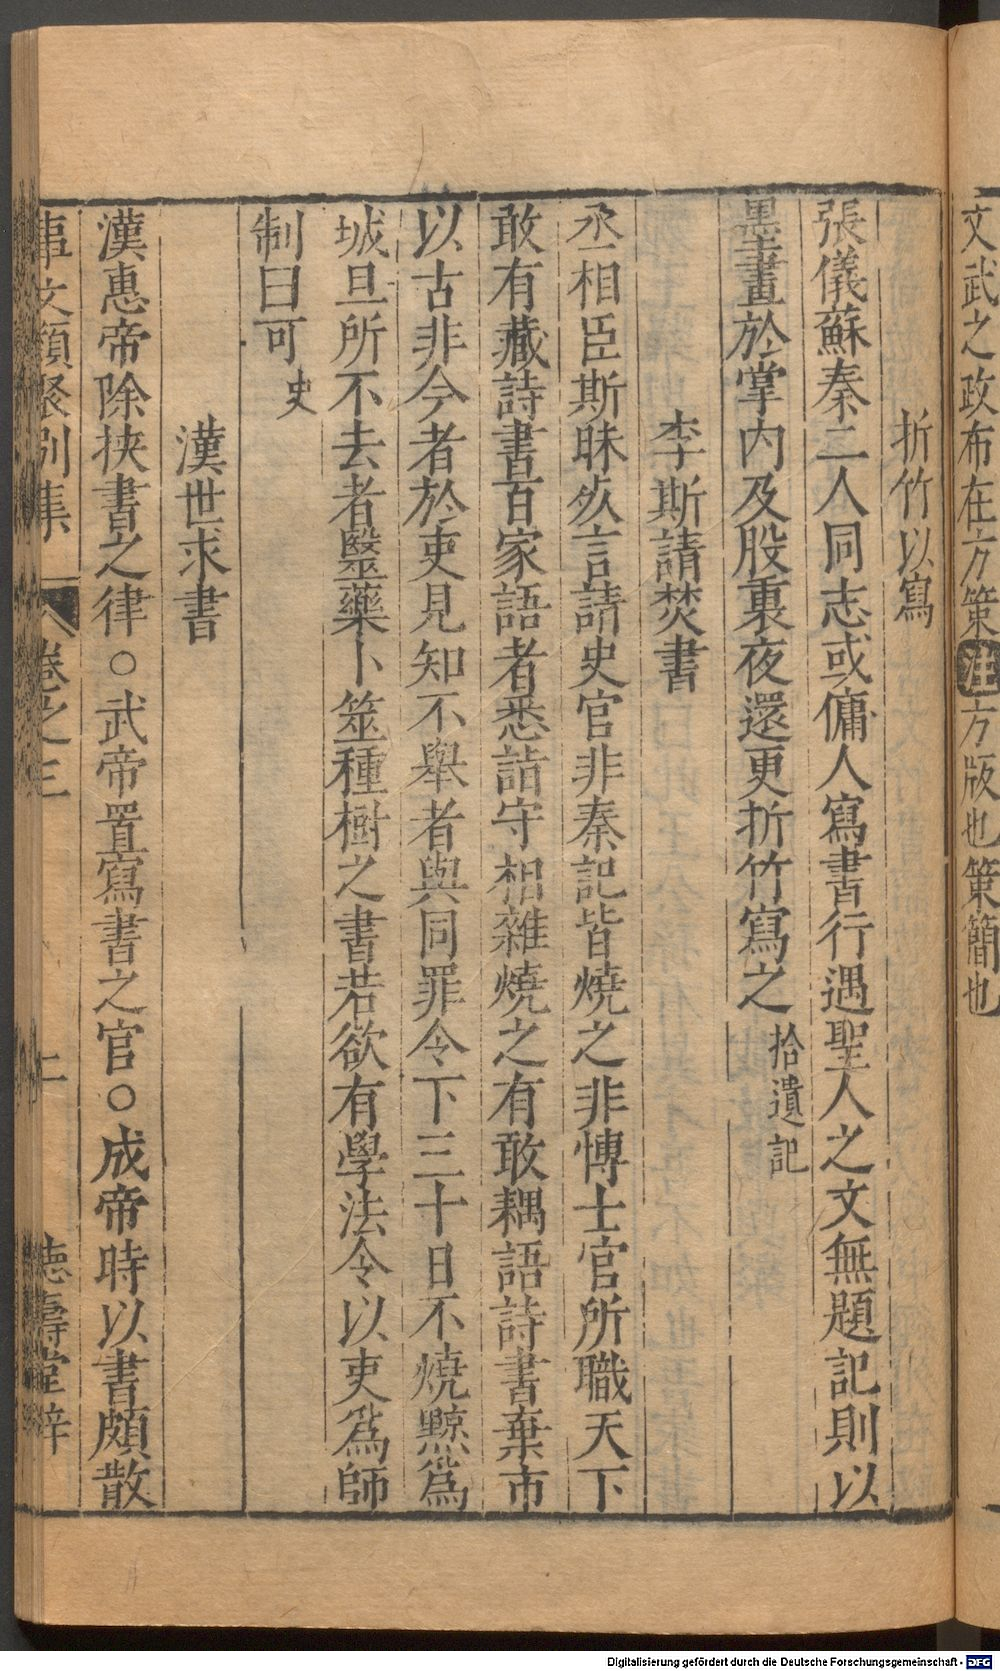 文武之政布在方策注方版也策簡也
折竹以寫
張儀蘇秦二人同志或傭人寫書行遇聖人之文無題記則以
墨畫於掌内及股裏夜還更折竹寫之拾遺記
李斯請焚書
丞相臣斯昧死言請史官非秦記皆燒之非博士官所職天下
敢有藏詩書百家語者悉詣守相雜燒之有敢耦語詩書棄市
以古非今者於吏見知不舉者與同罪令下三十日不燒黥爲
城旦所不去者醫藥卜筮種樹之書若欲有學法令以吏爲師
制曰可史
漢世求書
漢惠帝除挾書之律○武帝置寫書之官○成帝時以書頗散
事文類聚別集 卷之三 二 德壽堂梓
Digitalisierung gefördert durch die Deutsche Forschungsgemeinschaft - DFG